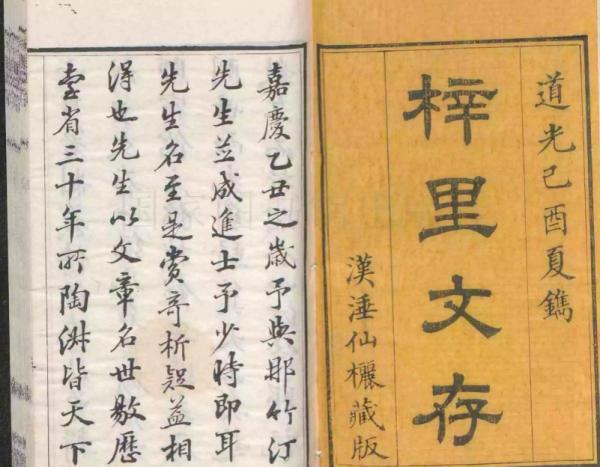 道光己酉夏鐫
梓里文存
漢埵仙欐藏版
嘉慶乙丑之歲予與那竹汀
先生並成進士予少時即耳
先生名至是賞奇析疑益相
得也先生以文章名世敭歷
臺省三十年所陶淑皆天下